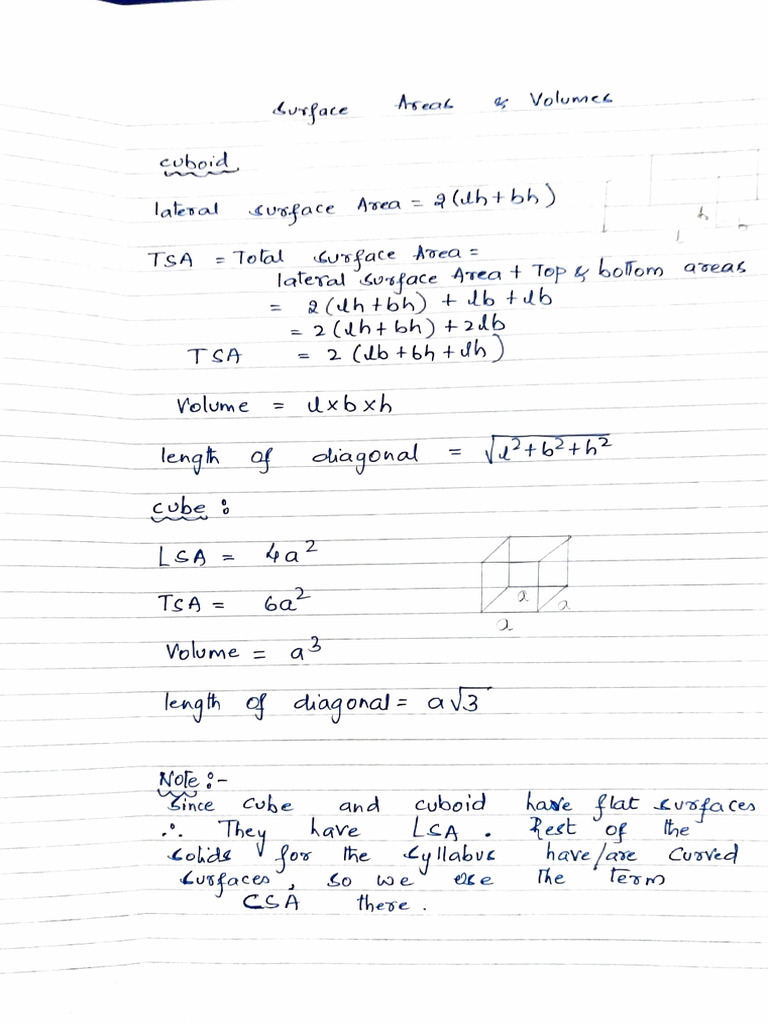 Surface Areas & Volumes
cuboid
lateral surface Area = 2(lh+bh)
h
l
TSA = Total surface Area =
lateral surface Area + Top & bottom areas
= 2(lh+bh) + lb + lb
= 2(lh+bh)+2lb
TSA = 2(lb+bh+lh)
Volume = l×b×h
length of diagonal = √l²+b²+h²
cube :
LSA = 4a²
TSA = 6a²
a a
a
Volume = a³
length of diagonal = a√3
Note :-
Since cube and cuboid have flat surfaces
∴ They have LSA . Rest of the
solids for the syllabus have/are curved
surfaces, so we use the term
CSA there.